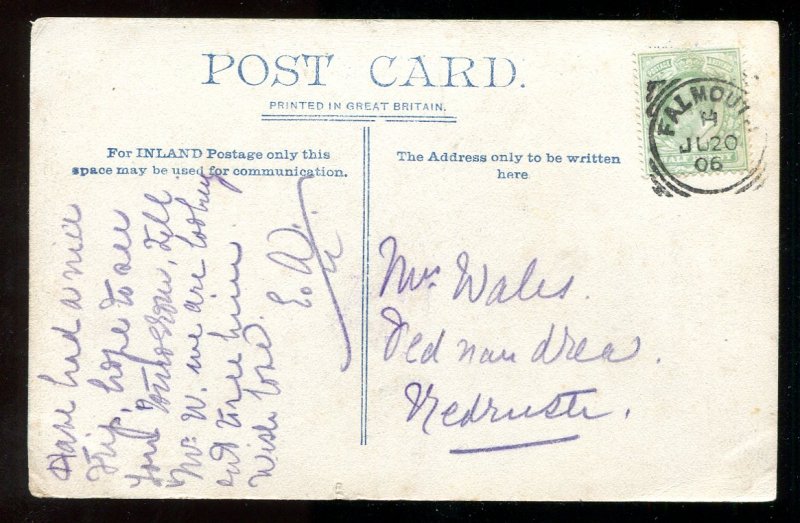 POST CARD.
PRINTED IN GREAT BRITAIN.
For INLAND Postage only this
space may be used for communication.
The Address only to be written
here
FALMOUTH
JU 20
06
Have had a nice
trip, hope to see
you tomorrow, Tell
Mr. W. we are looking
out to see him.
With love. E. A.
Mrs Wales.
Pednandrea.
Redruth.